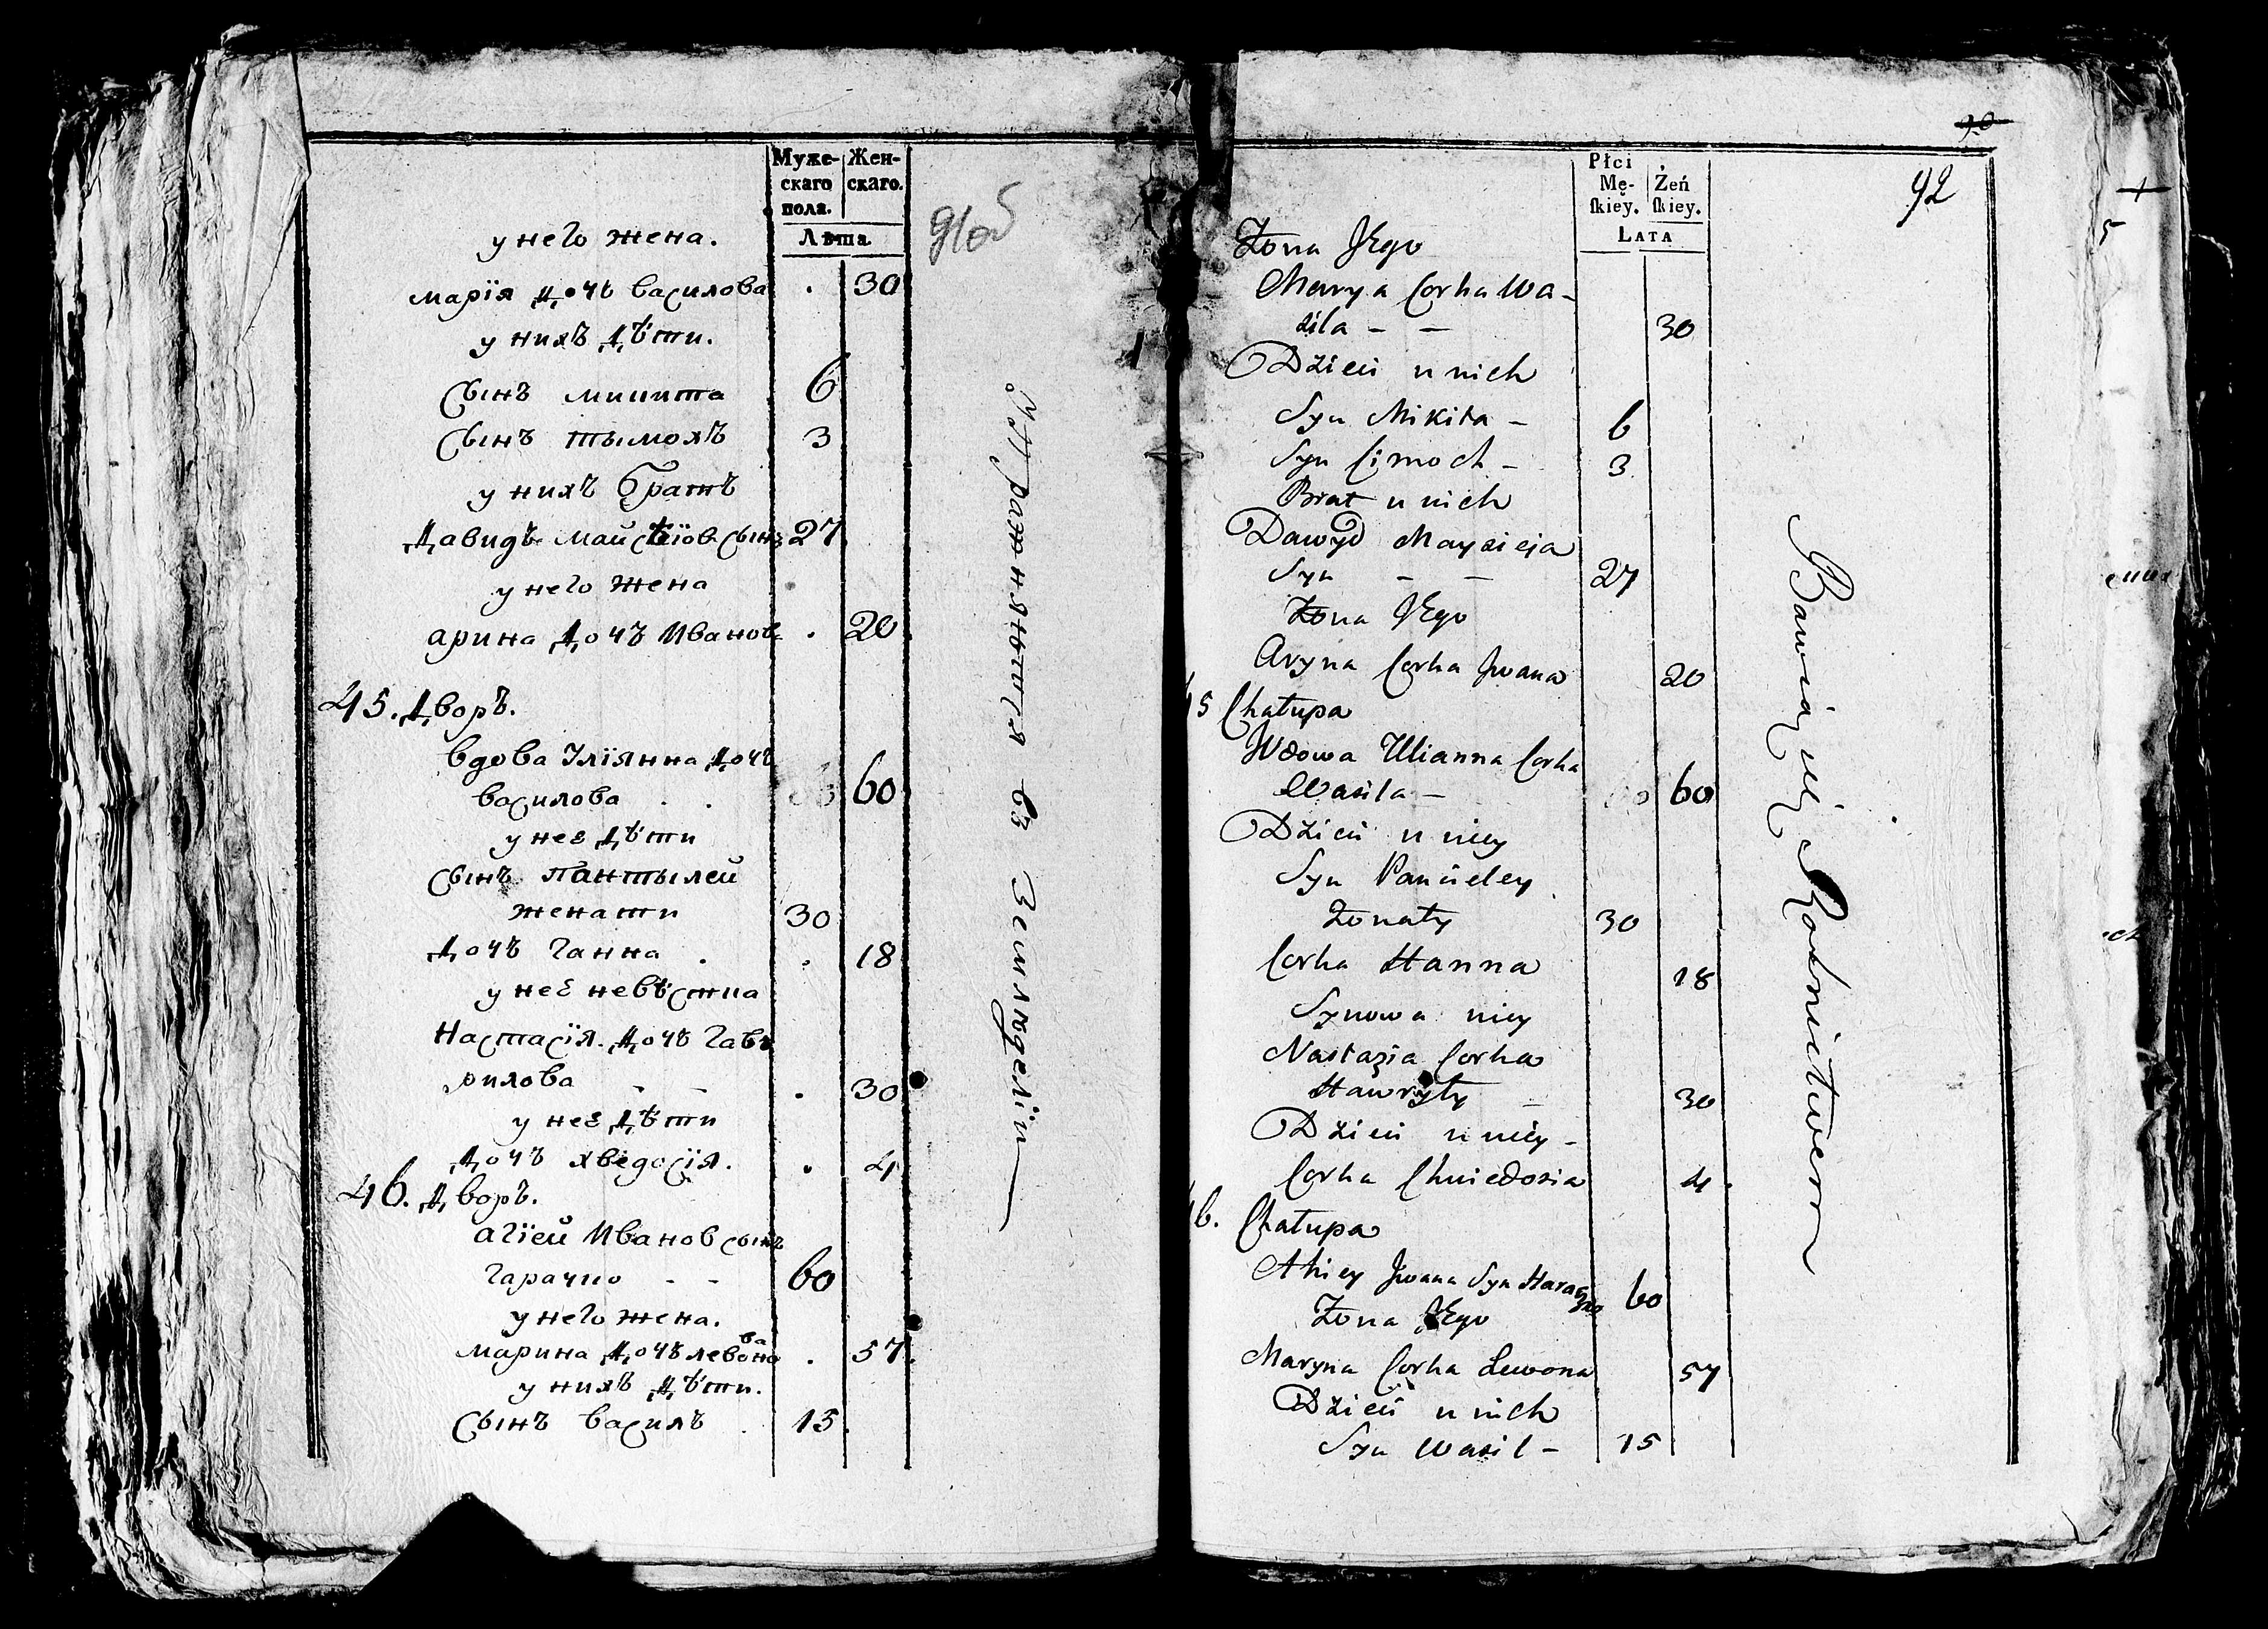 Муже-
скаго
пола.
Жен-
скаго.
Лѣта
у него жена.
марїя дочъ василова . 30
у нихъ дѣти.
сынъ микита 6
сынъ тымохъ 3
у нихъ братъ
Давидъ майсѣїов сынъ 27
у него жена
арина дочъ Иванова . 20
45. Дворъ.
вдова Улїянна дочъ
василова . . 60
у неё дѣти
сынъ пантылей
женати 30
дочъ ганна . . 18
у неё невѣстка
настасїя дочъ гав
рилова - - . 30
у неё дѣти
дочъ хведосїя. . 4
46. Дворъ.
агїей Иванов сынъ
гарачко - - 60
у него жена.
марина дочъ левонова . 57.
у нихъ дѣти.
сынъ василъ . 15.
91об
Упражняются вз Земледелїи
90
92
Płci
Mę-
skiey.
Żeń
skiey.
LATA
Żona JEgo
Marya Corka Wa-
sila - - 30
Dzieci u nich
Syn Mikita - 6
Syn Cimoch - 3
Brat u nich
Dawyd Maysieja
Syn - - 27
Żona JEgo
Aryna Corka Jwana 20
45 Chałupa
Wdowa Ulianna Corka
Wasila - 60
Dzieci u niey
Syn Pancieley
Żonaty 30
Corka Hanna 18
Synowa niey
Nastazia Corka
Hawryły - 30
Dzieci u niey -
Corka Chwiedosia 4.
46. Chałupa
Ahiey Jwana Syn Haraczko 60
Żona JEgo
Maryna Corka Lewona 57
Dzieci u nich
Syn Wasil - 15
Bawią się Rolnictwem